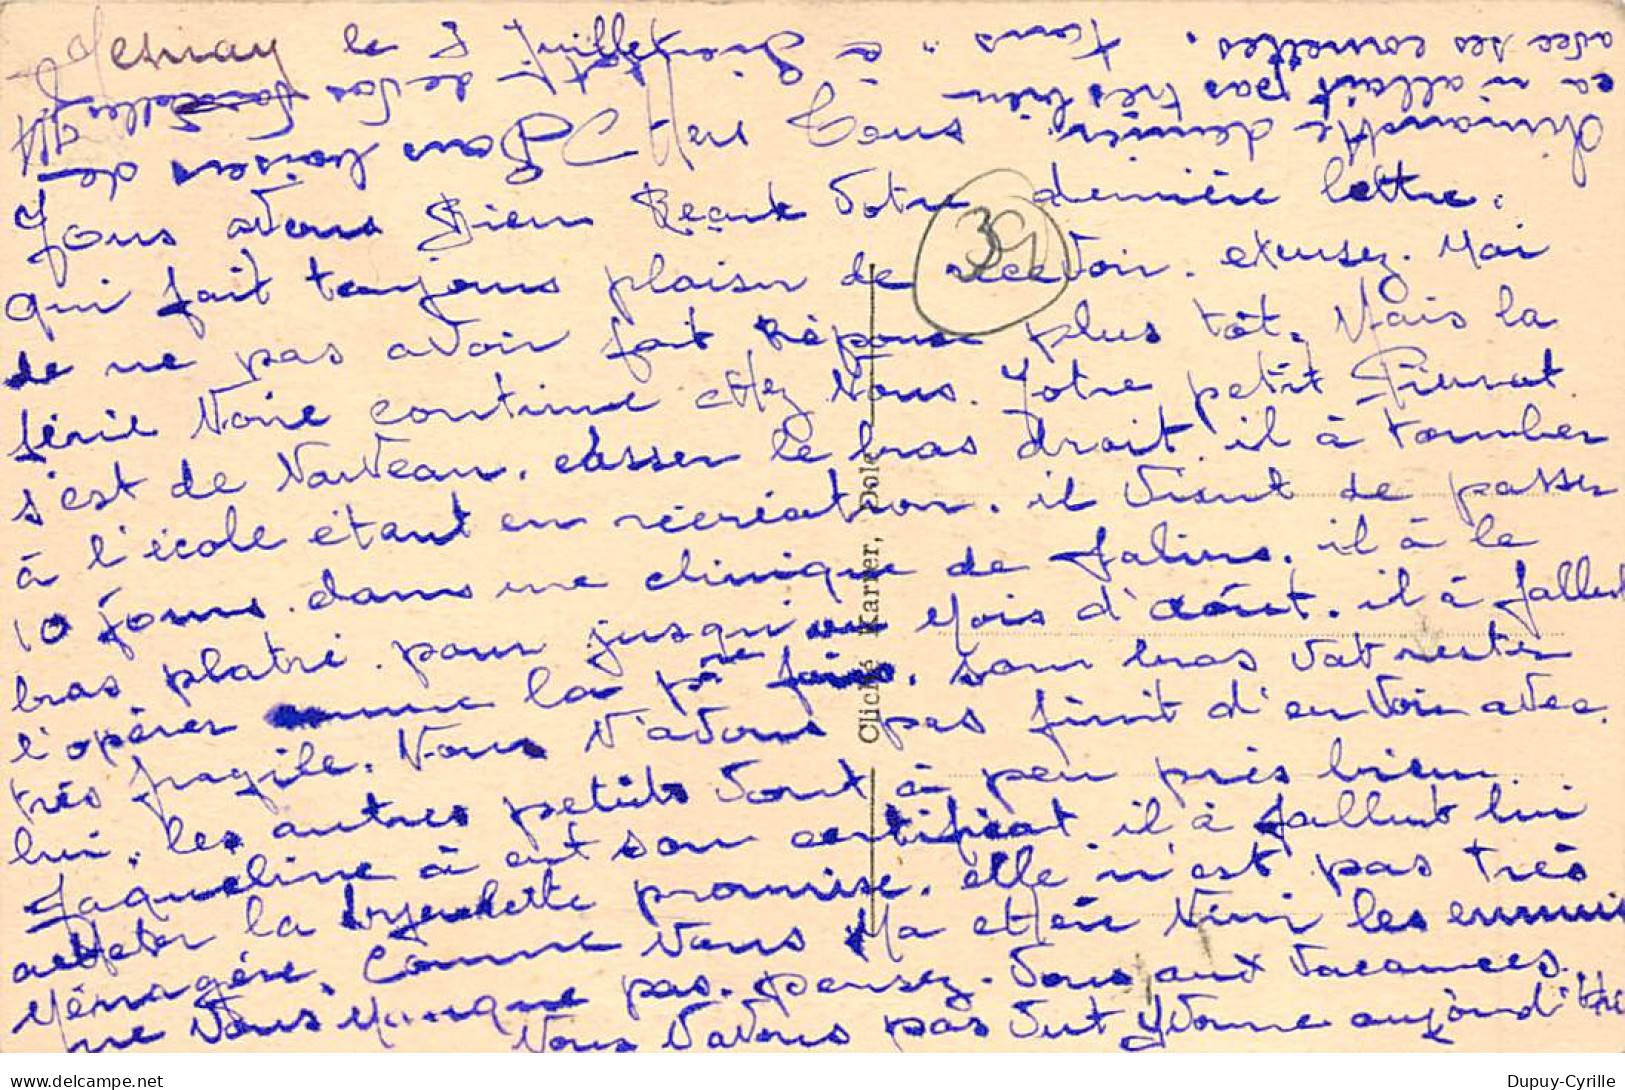 Mesnay le 5 Juillet
Mes Tous
Vous avons Bien Reçut Votre dernière lettre.
qui fait toujous plaisir de recevoir. excusez. Moi
de ne pas avoir fait Réponse plus tôt. Mais la
série Noire continue chez Nous. Votre petit Pierrot
s'est de Nouveau. casser le bras droit. il à tomber
à l'école étant en récréation. il vient de passer
10 jours. dans une clinique de Salins. il à le
bras platré. pour jusqu'au Mois d'aôut. il à fallut
l'opérer comme la pre fois. son bras Vat rester
très fragile. Nous N'avons pas finit d'en voir avec
lui. les autres petits Vont à peu près bien.
Jaqueline à eut son certificat il à fallut lui
acheter la byciclette promise. elle n'est pas très
Ménagère. comme Vous Ma chère Nini les ennuis
ne Vous Manque pas. pensez. Vous aux Vacances.
Nous Navons pas Vut Yvonne aujourd'hui
Dimanche dernier
ça n'allait pas très bien
avec ses cornettes.
à tous
Bons baisers de
Cliché Karrer, Dole
39
Dupuy-Cyrille